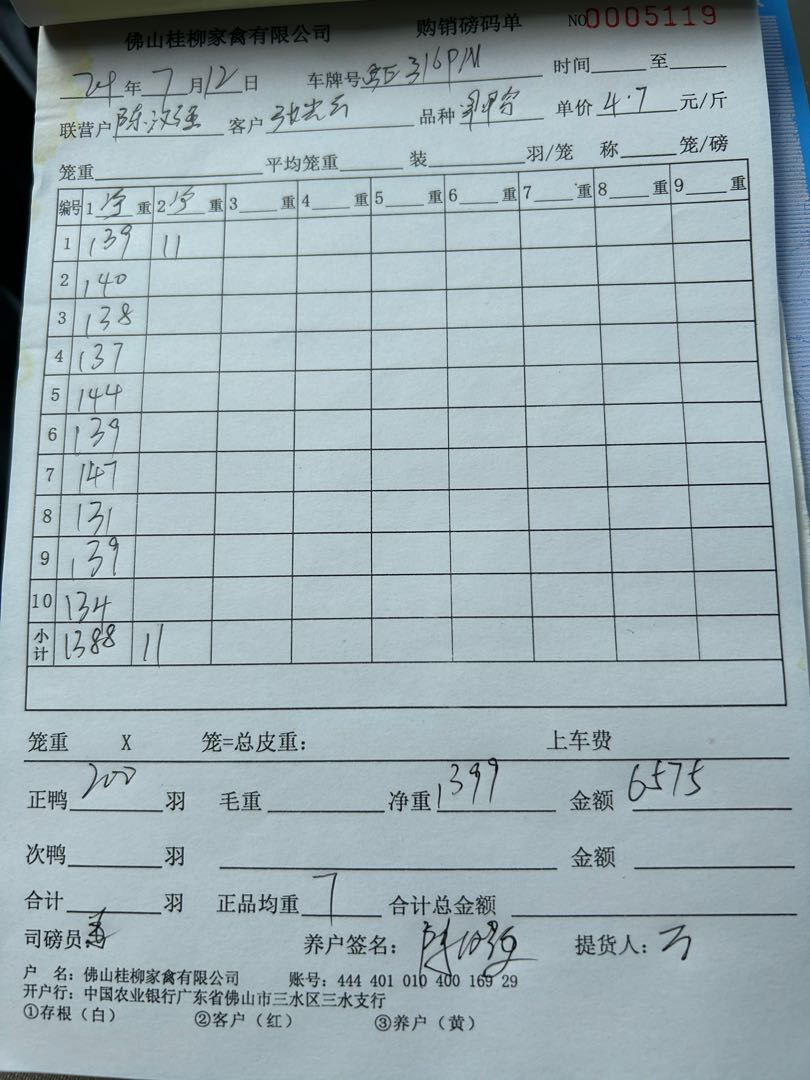 佛山桂柳家禽有限公司 购销磅码单 NO0005119
24年7月12日 车牌号 316PM 时间 至
联营户 陈汝强 客户 张光云 品种 单价 4.7 元/斤
笼重 平均笼重 装 羽/笼 称 笼/磅
编号 1 净 重 2 净 重 3 重 4 重 5 重 6 重 7 重 8 重 9 重
1 139 11
2 140
3 138
4 137
5 144
6 139
7 147
8 131
9 139
10 134
小计 1388 11
笼重 X 笼=总皮重: 上车费
正鸭 200 羽 毛重 净重 1399 金额 6575
次鸭 羽 金额
合计 羽 正品均重 7 合计总金额
司磅员: 养户签名: 提货人:
户 名: 佛山桂柳家禽有限公司 账号: 444 401 010 400 169 29
开户行: 中国农业银行广东省佛山市三水区三水支行
①存根(白) ②客户(红) ③养户(黄)